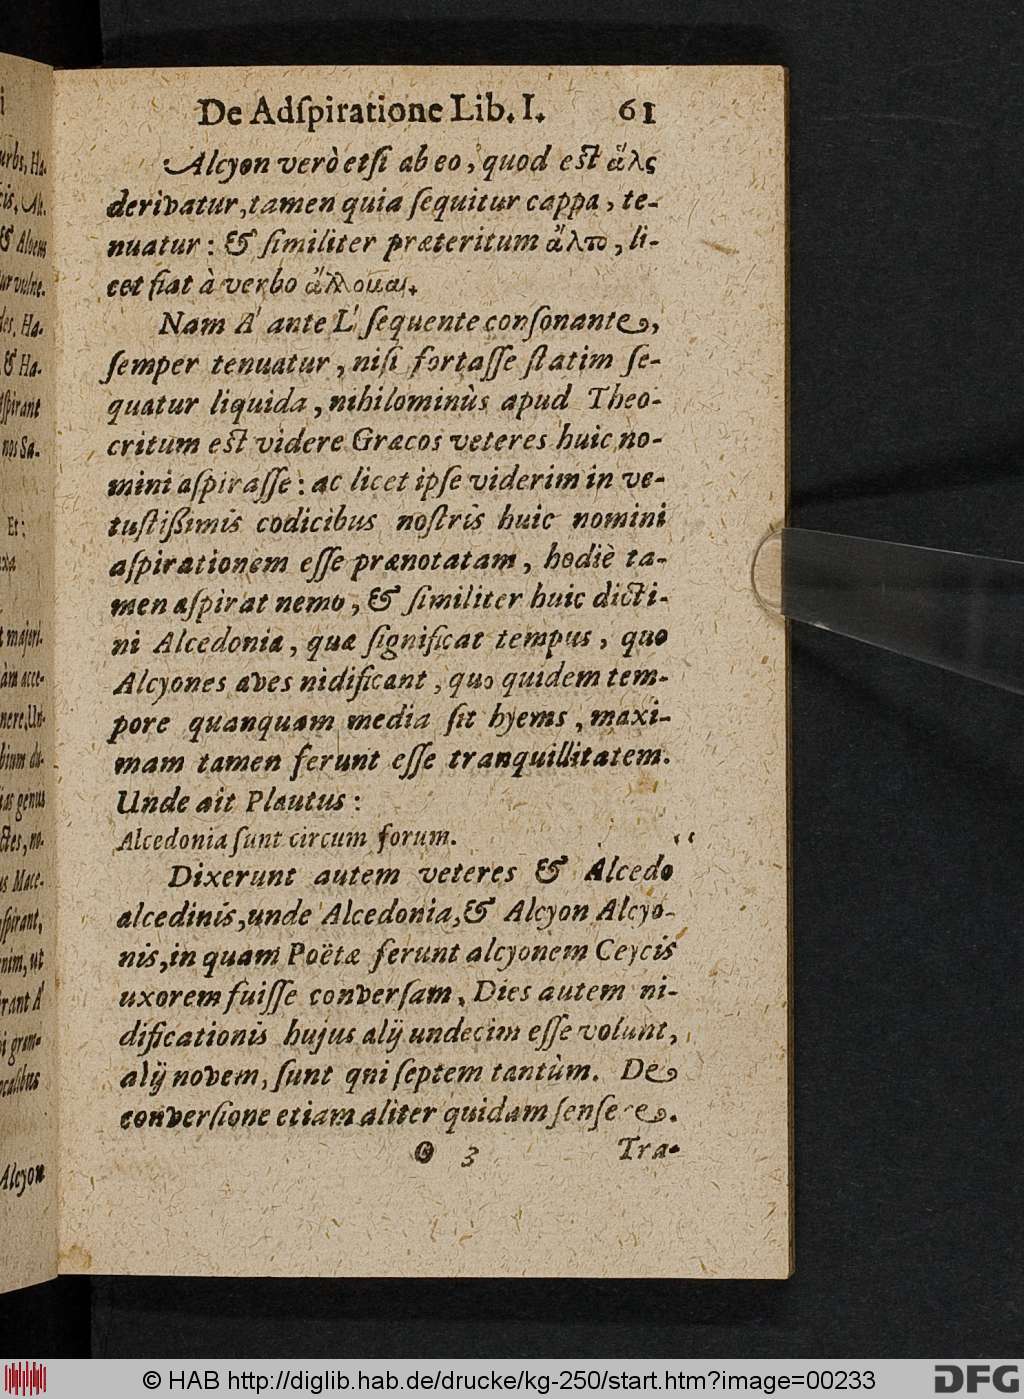 De Adſpiratione Lib. I. 61
Alcyon verò etſi ab eo, quod eſt ἅλς
derivatur, tamen quia ſequitur cappa, te-
nuatur: & ſimiliter præteritum ἄλτο, li-
cet fiat à verbo ἅλλομαι.
Nam A' ante L' ſequente conſonante,
ſemper tenuatur, niſi fortaſſe ſtatim ſe-
quatur liquida, nihilominùs apud Theo-
critum eſt videre Græcos veteres huic no-
mini aſpiraſſe: ac licet ipſe viderim in ve-
tuſtißimis codicibus noſtris huic nomini
aſpirationem eſſe prænotatam, hodiè ta-
men aſpirat nemo, & ſimiliter huic dicti-
ni Alcedonia, quæ ſignificat tempus, quo
Alcyones aves nidificant, quo quidem tem-
pore quanquam media ſit hyems, maxi-
mam tamen ferunt eſſe tranquillitatem.
Unde ait Plautus:
Alcedonia ſunt circum forum. “
Dixerunt autem veteres & Alcedo
alcedinis, unde Alcedonia, & Alcyon Alcyo-
nis, in quam Poëtæ ferunt alcyonem Ceycis
uxorem fuiſſe converſam. Dies autem ni-
dificationis hujus alij undecim eſſe volunt,
alij novem, ſunt qni ſeptem tantùm. De
converſione etiam aliter quidam ſenſere.
G 3 Tra-
i
urbs, Ha-
& Ha-
nos Sa-
Et:
t majori-
àm acce-
nere, Un-
bium du-
ias genus
ctes, no-
us Mace-
ſpirant,
nim, ut
irant A'
ocalibus
Alcyon
© HAB http://diglib.hab.de/drucke/kg-250/start.htm?image=00233
DFG